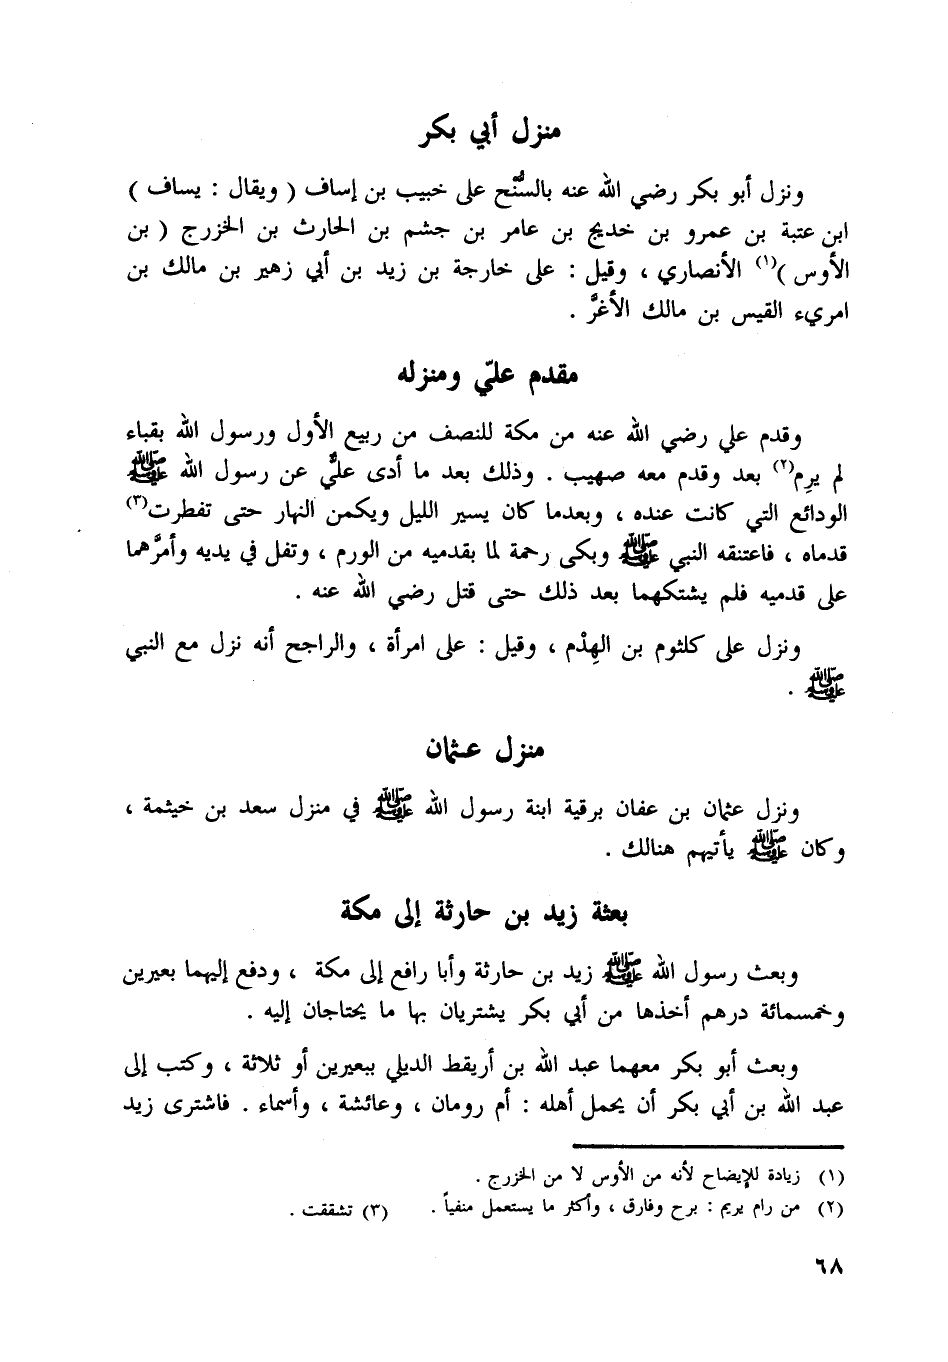 منزل أبي بكر
ونزل أبو بكر رضي الله عنه بالسُّنْح على خبيب بن إساف ( ويقال : يساف )
ابن عتبة بن عمرو بن خديج بن عامر بن جشم بن الحارث بن الخزرج ( بن
الأوس )(١) الأنصاري ، وقيل : على خارجة بن زيد بن أبي زهير بن مالك بن
امريء القيس بن مالك الأغرَّ .
مقدم عليّ ومنزله
وقدم علي رضي الله عنه من مكة للنصف من ربيع الأول ورسول الله بقباء
لم يرِم(٢) بعد وقدم معه صهيب . وذلك بعد ما أدى عليٌّ عن رسول الله ﷺ
الودائع التي كانت عنده ، وبعدما كان يسير الليل ويكمن النهار حتى تفطرت(٣)
قدماه ، فاعتنقه النبي ﷺ وبكى رحمة لما بقدميه من الورم ، وتفل في يديه وأمرَّهما
على قدميه فلم يشتكهما بعد ذلك حتى قتل رضي الله عنه .
ونزل على كلثوم بن الهِدْم ، وقيل : على امرأة ، والراجح أنه نزل مع النبي
ﷺ .
منزل عثمان
ونزل عثمان بن عفان برقية ابنة رسول الله ﷺ في منزل سعد بن خيثمة ،
وكان ﷺ يأتيهم هنالك .
بعثة زيد بن حارثة إلى مكة
وبعث رسول الله ﷺ زيد بن حارثة وأبا رافع إلى مكة ، ودفع إليهما بعيرين
وخمسمائة درهم أخذها من أبي بكر يشتريان بها ما يحتاجان إليه .
وبعث أبو بكر معهما عبد الله بن أريقط الديلي ببعيرين أو ثلاثة ، وكتب إلى
عبد الله بن أبي بكر أن يحمل أهله : أم رومان ، وعائشة ، وأسماء . فاشترى زيد
(١) زيادة للإيضاح لأنه من الأوس لا من الخزرج .
(٢) من رام يريم : برح وفارق ، وأكثر ما يستعمل منفياً . (٣) تشققت .
٦٨